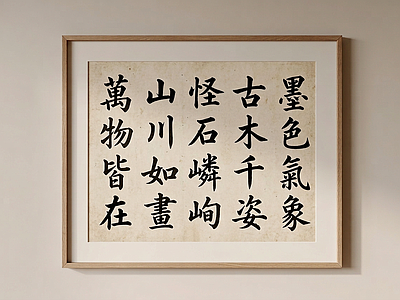 墨色氣象
古木千姿
怪石嶙峋
山川如畫
萬物皆在